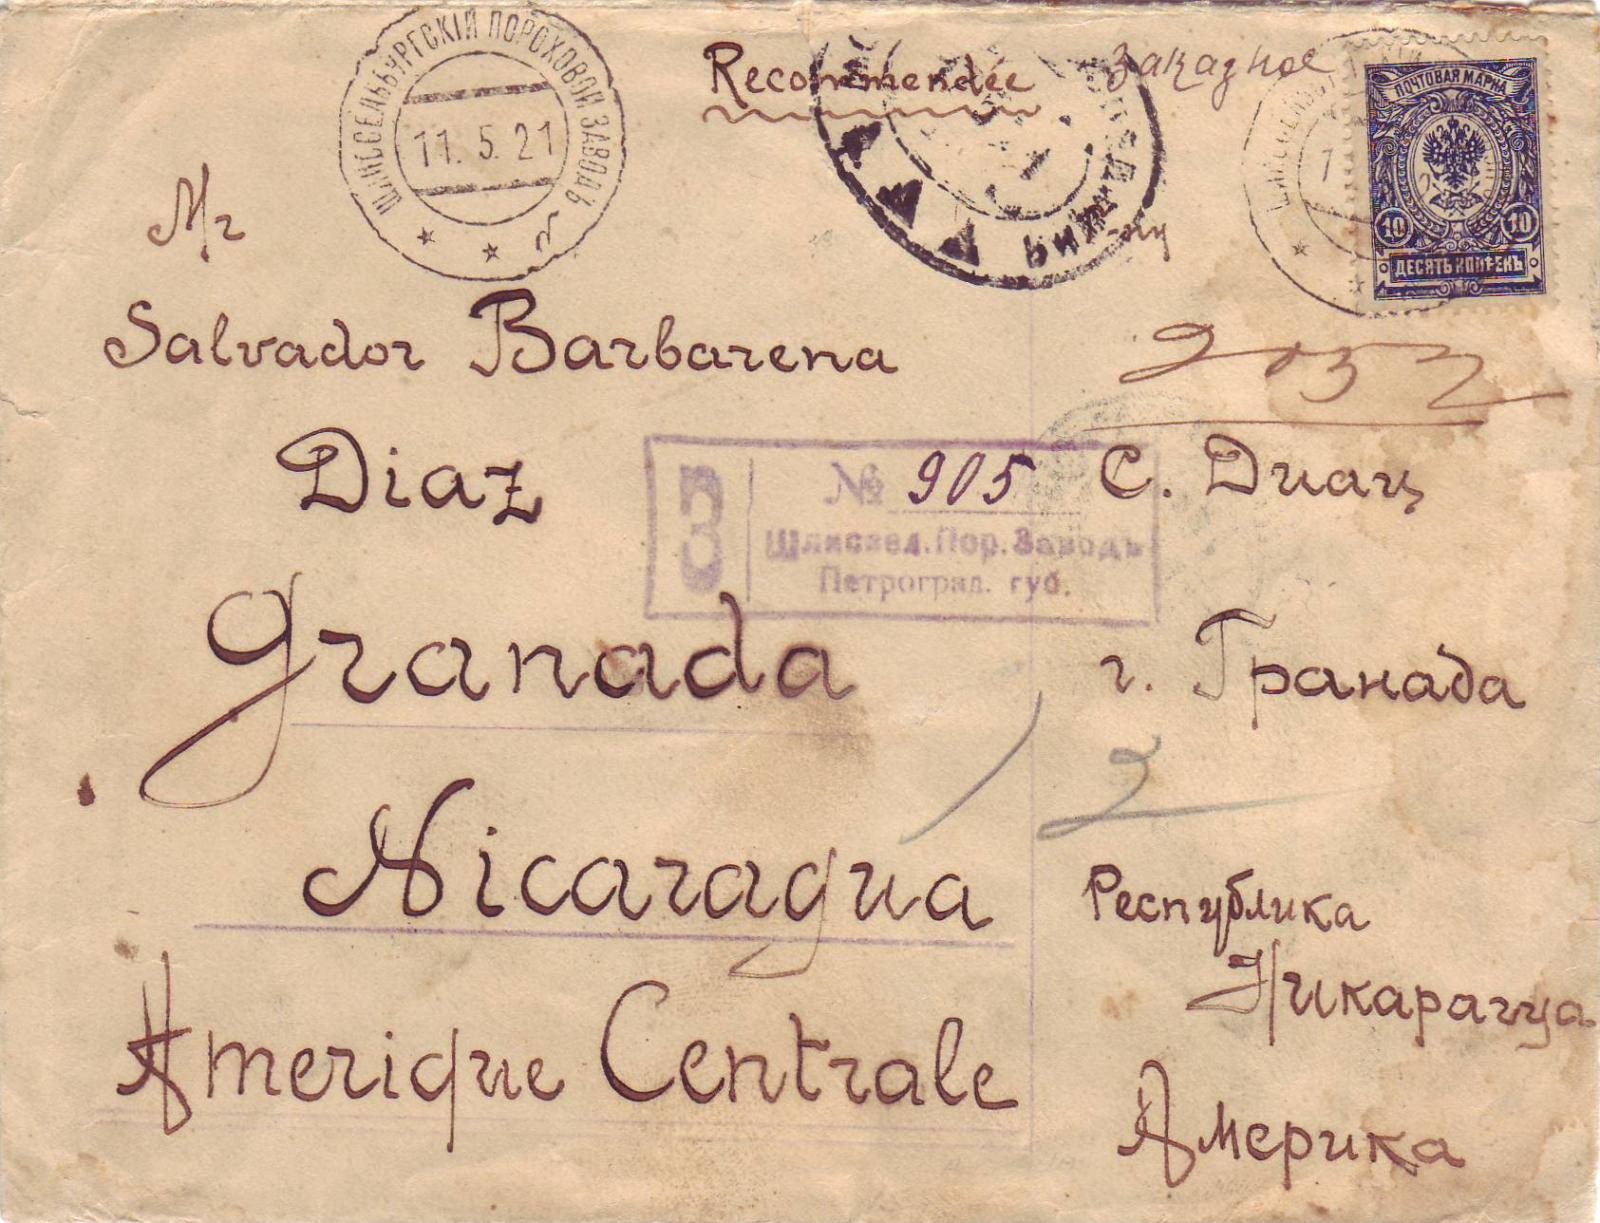 ШЛИССЕЛЬБУРГСКІЙ ПОРОХОВОЙ ЗАВОДЪ
11.5.21
Recommendée
Заказное
ПОЧТОВАЯ МАРКА
10 10
ДЕСЯТЬ КОПѢЕКЪ
Mr
Salvador Barbarena
Diaz
С. Диац
З
№ 905
Шлиссел. Пор. Заводъ
Петроград. губ.
Granada
г. Гранада
2
Nicaragua
Республика
Никарагуа
Amerique Centrale
Америка